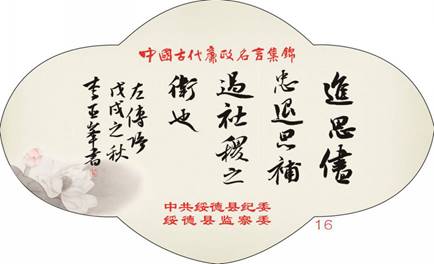 中國古代廉政名言集錦
進思儘
忠退思補
過社稷之
衛也
左傳語
戊戌之秋
李亚峯書
中共绥德县纪委
绥德县监察委
16